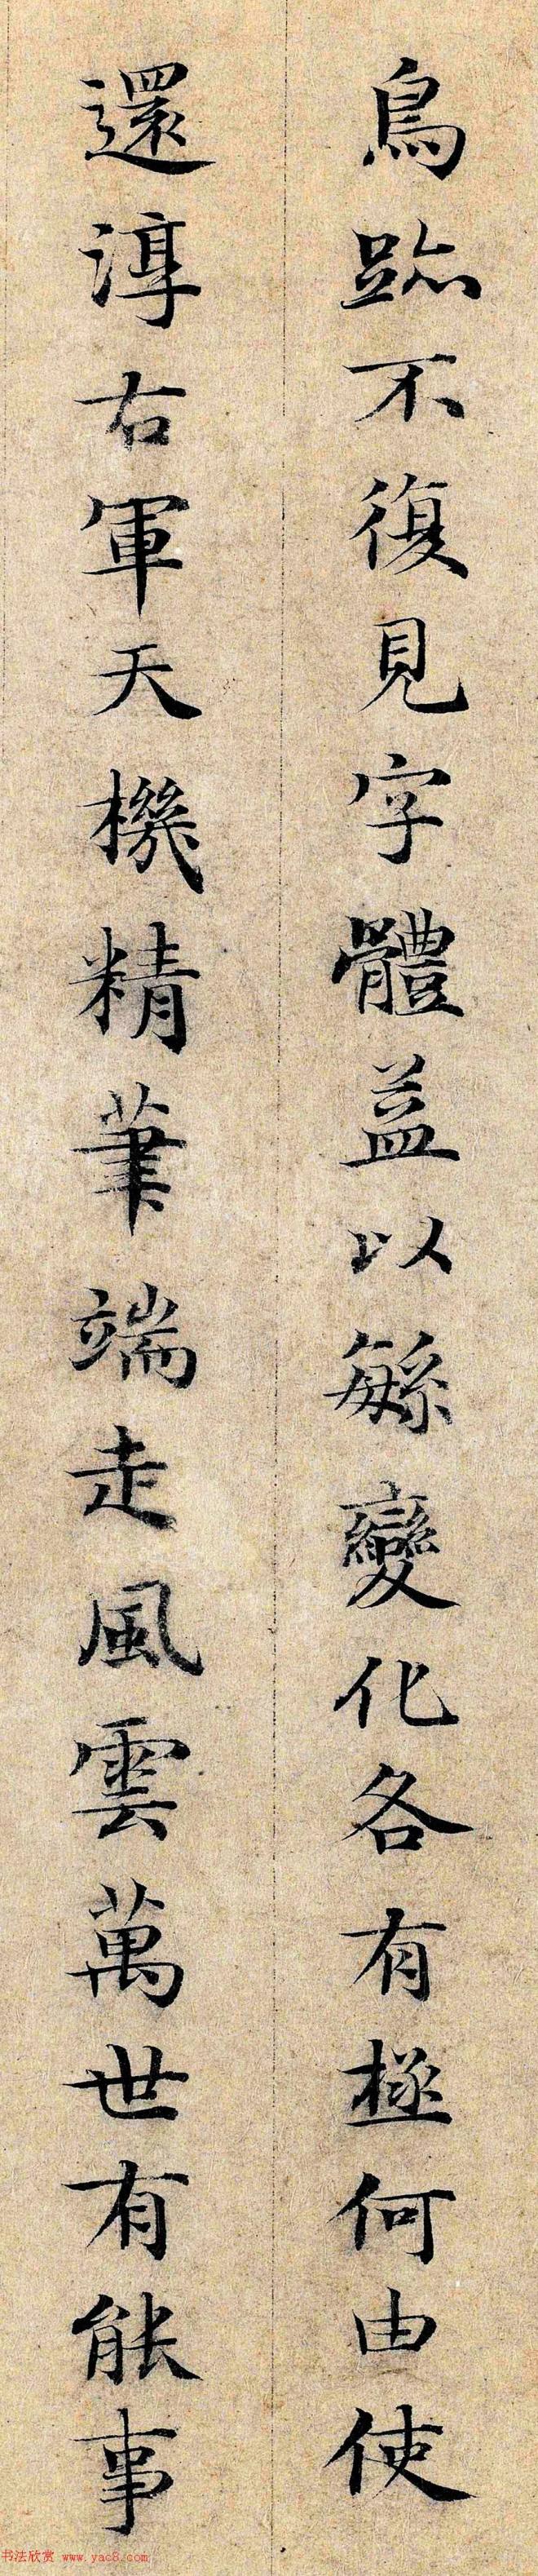 鳥跡不復見字體益以緐變化各有極何由使
還淳右軍天機精筆端走風雲萬世有能事
书法欣赏 www.yac8.com